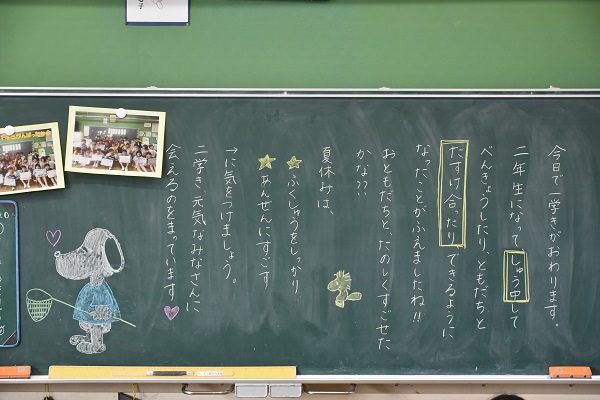 今日で一学きがおわります。
二年生になってしゅう中して
べんきょうしたり、ともだちと
たすけ合ったりできるように
なったことがふえましたね!!
おともだちと、たのしくすごせた
かな??
夏休みは、
ふくしゅうをしっかり
あんぜんにすごす
→に気をつけましょう。
二学き、元気なみなさんに
会えるのをまっています